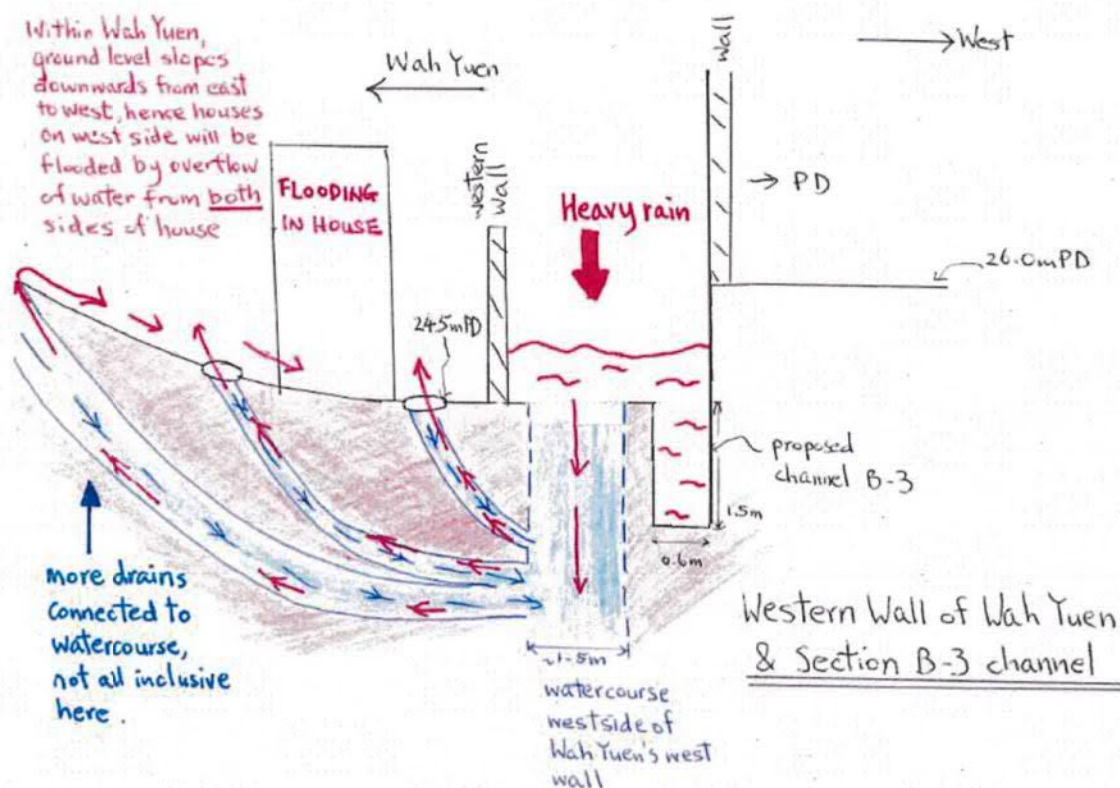 Within Wah Yuen,
ground level slopes
downwards from east
to west, hence houses
on west side will be
flooded by overflow
of water from both
sides of house
Wah Yuen
FLOODING
IN HOUSE
western
Wall
Heavy rain
Wall
West
PD
26.0mPD
24.5mPD
proposed
channel B-3
1.5m
0.6m
more drains
connected to
watercourse,
not all inclusive
here.
~1.5m
watercourse
westside of
Wah Yuen's west
wall
Western Wall of Wah Yuen
& Section B-3 channel